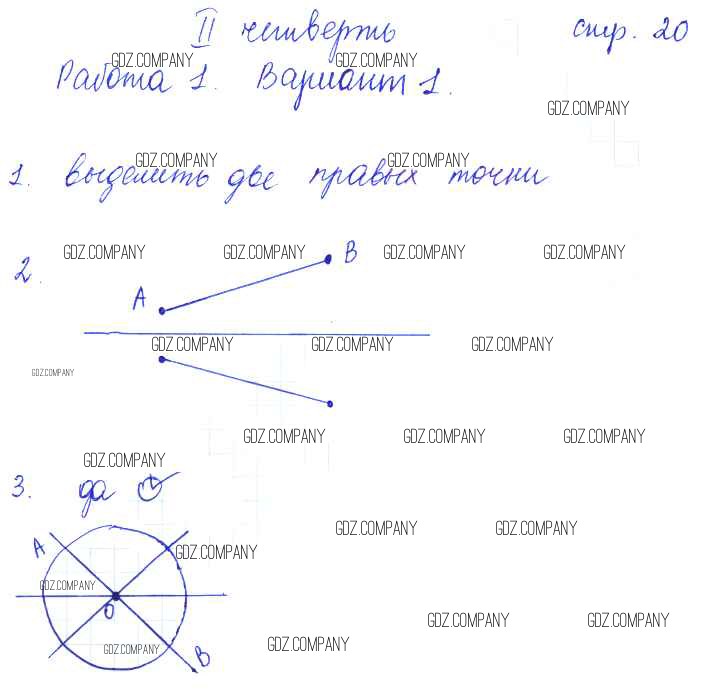 II четверть стр. 20
GDZ.COMPANY GDZ.COMPANY
Работа 1. Вариант 1.
GDZ.COMPANY
GDZ.COMPANY GDZ.COMPANY
1. выделить две правых точки
GDZ.COMPANY GDZ.COMPANY GDZ.COMPANY GDZ.COMPANY
2. B
A
GDZ.COMPANY GDZ.COMPANY GDZ.COMPANY
GDZ.COMPANY
GDZ.COMPANY GDZ.COMPANY GDZ.COMPANY
GDZ.COMPANY
3. да
GDZ.COMPANY GDZ.COMPANY
A GDZ.COMPANY
GDZ.COMPANY
O
GDZ.COMPANY GDZ.COMPANY
GDZ.COMPANY GDZ.COMPANY
B